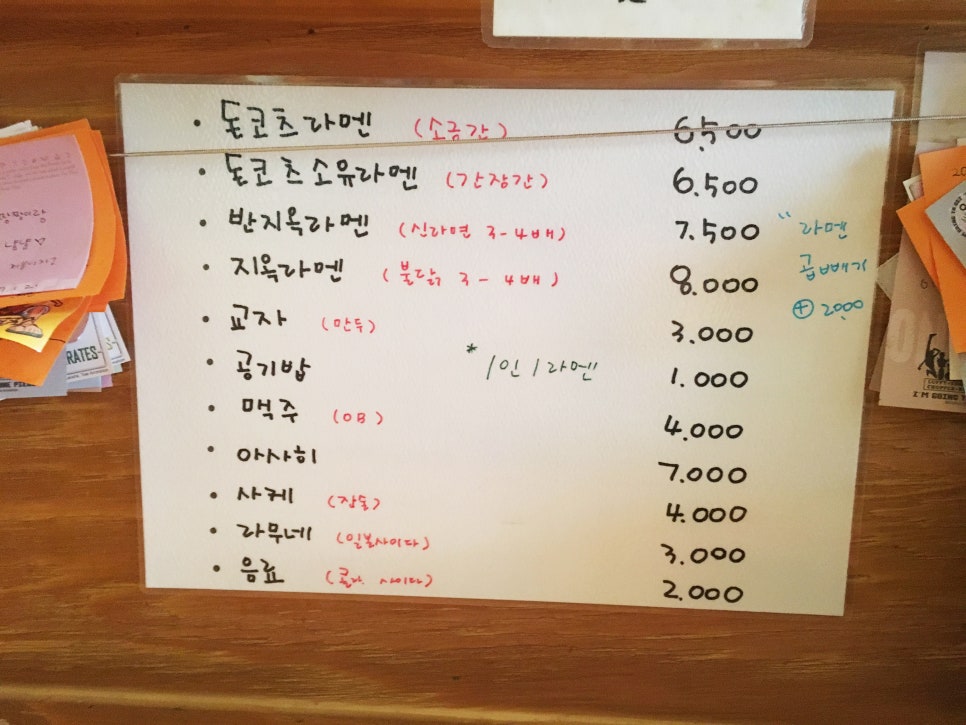 • 돈코츠라멘 (소금간) 6,500
• 돈코츠소유라멘 (간장간) 6.500
• 반지옥라멘 (신라면 3-4배) 7.500
• 지옥라멘 (불닭 3-4배) 8.000
• 교자 (만두) 3.000
• 공기밥 1.000
• 맥주 (OB) 4.000
• 아사히 7.000
• 사케 (잔술) 4.000
• 라무네 (일본사이다) 3.000
• 음료 (콜라. 사이다) 2.000
* 1인 1라멘
" 라멘
곱빼기
⊕ 2000
RATES-
I'M GOING